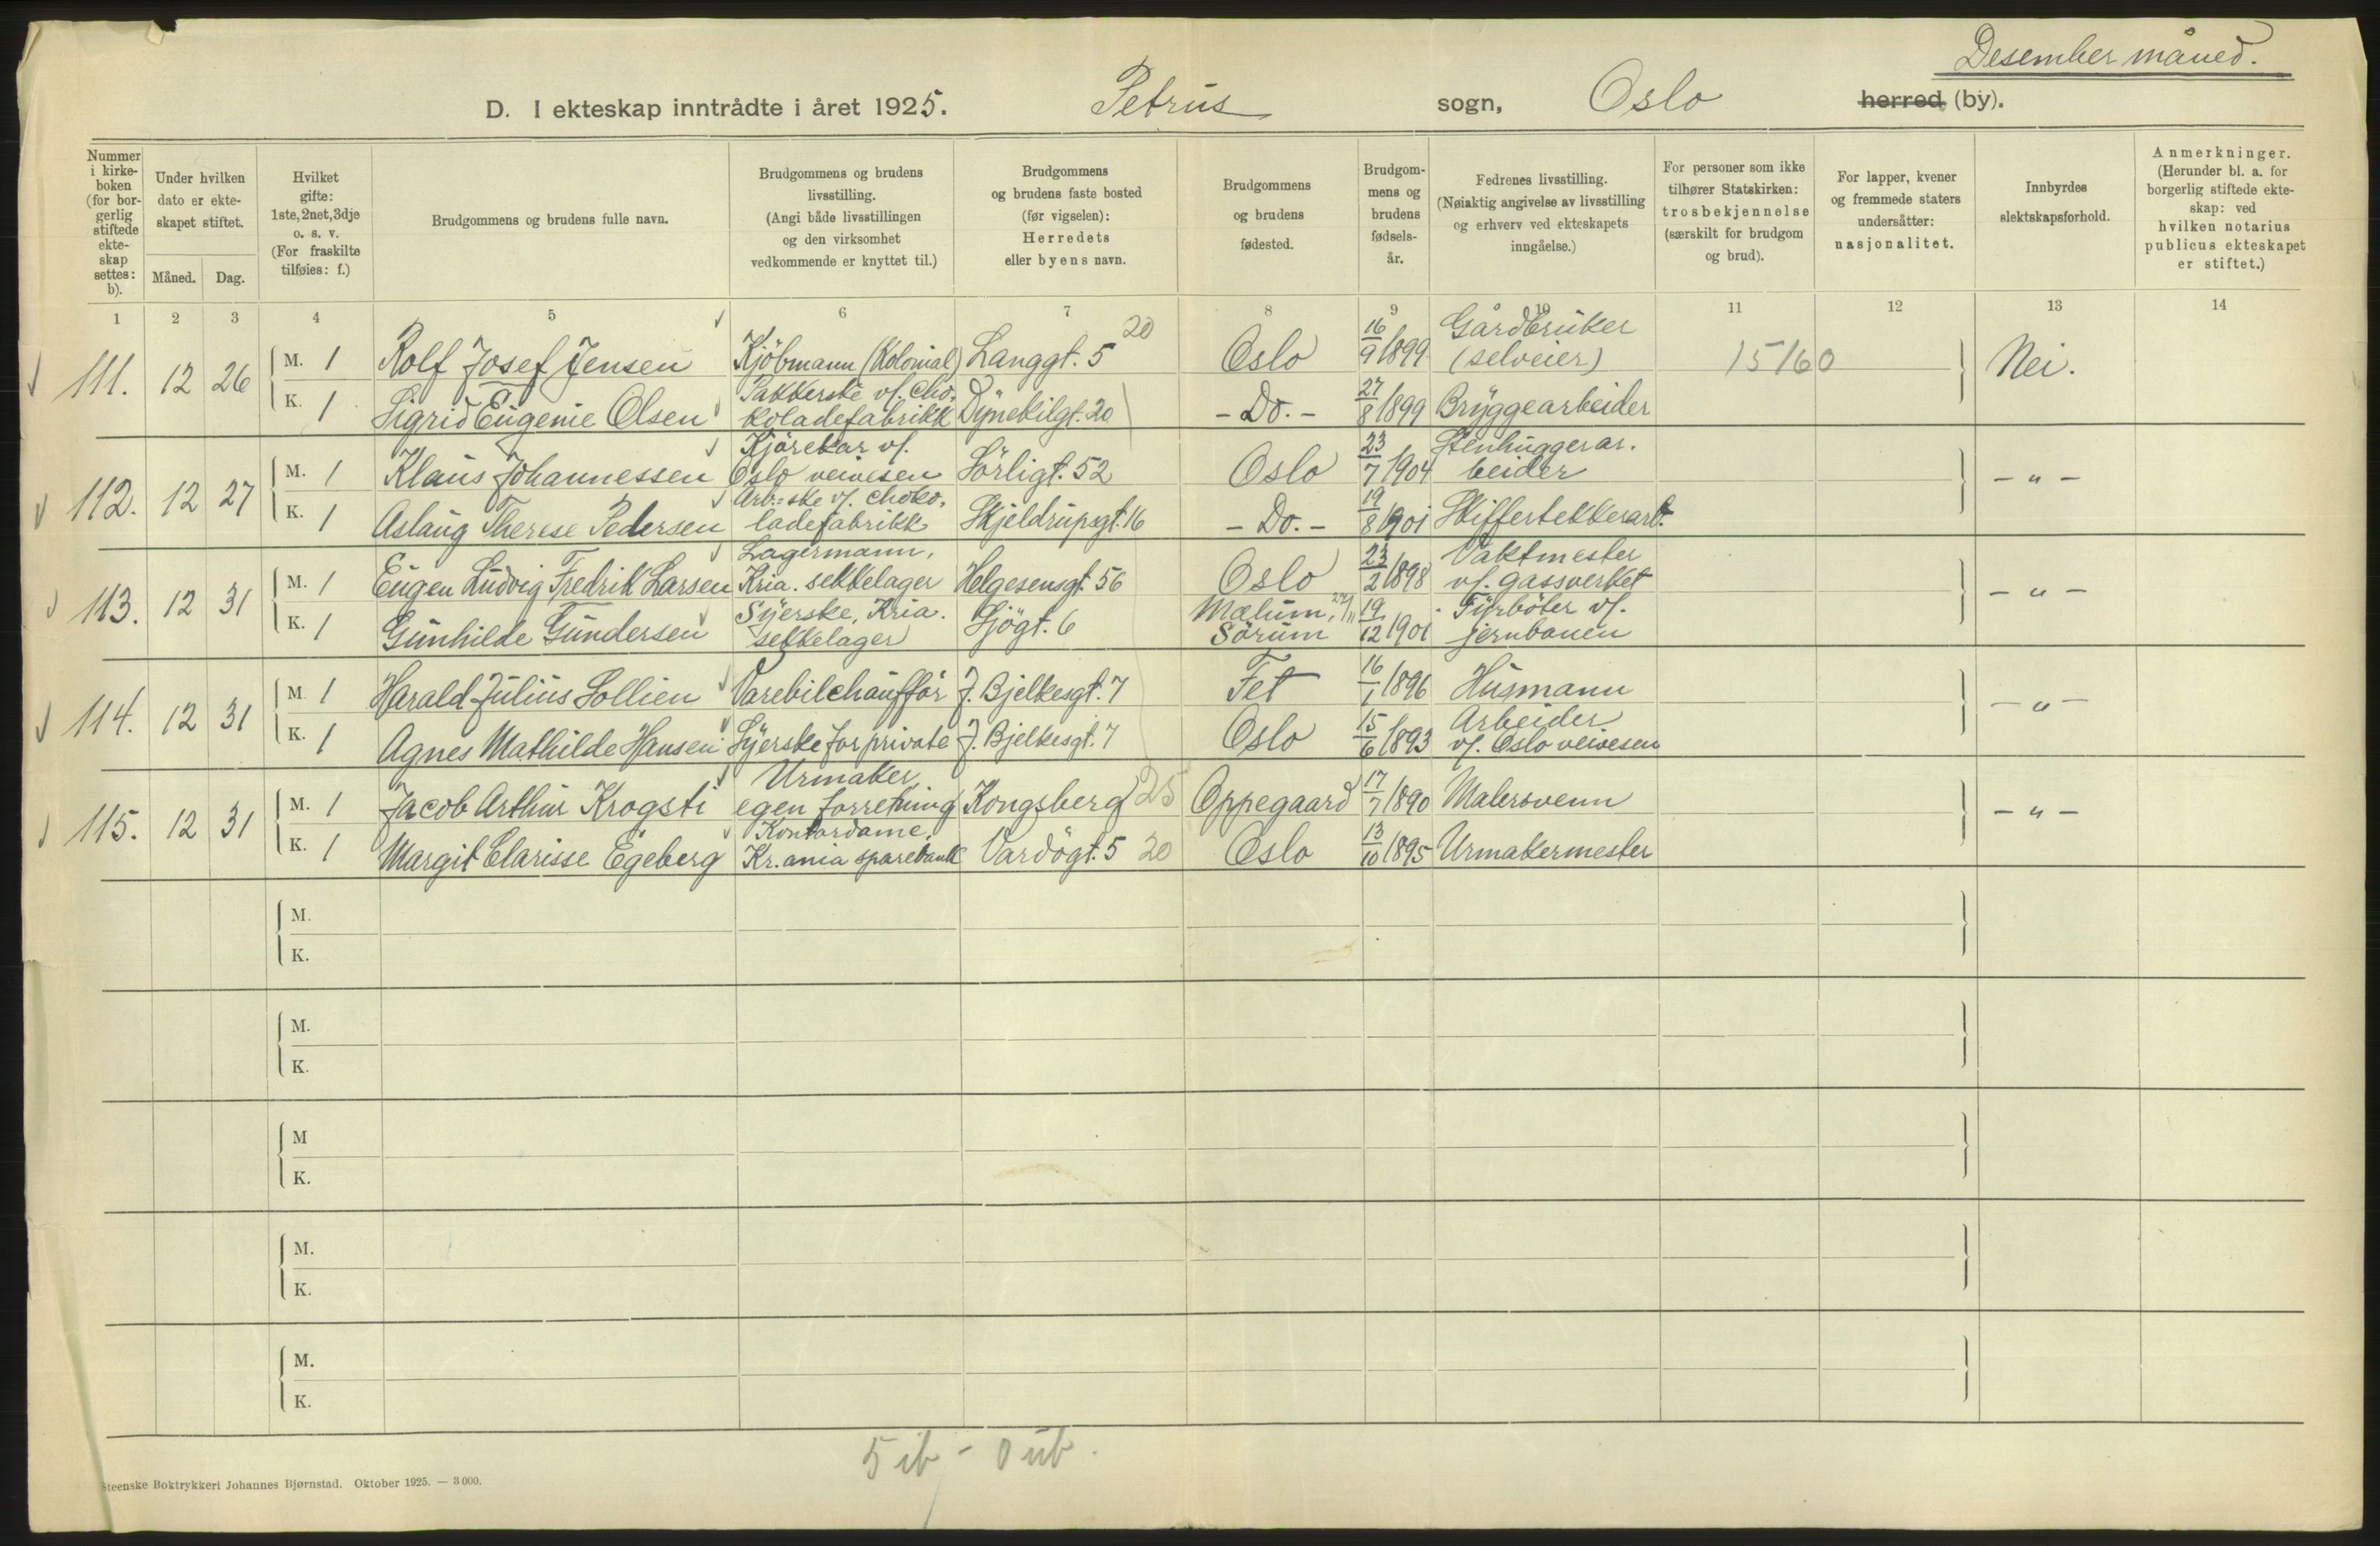 Desember måned.
D. I ekteskap inntrådte i året 1925. Petrus sogn, Oslo herred (by).
Nummer i kirke-boken (for bor-gerlig stiftede ekte-skap settes: b).
Under hvilken dato er ekte-skapet stiftet.
Måned. Dag.
Hvilket gifte: 1ste, 2net, 3dje o. s. v. (For fraskilte tilføies: f.)
Brudgommens og brudens fulle navn.
Brudgommens og brudens livsstilling. (Angi både livsstillingen og den virksomhet vedkommende er knyttet til.)
Brudgommens og brudens faste bosted (før vigselen): Herredets eller byens navn.
Brudgommens og brudens fødested.
Brudgom-mens og brudens fødsels-år.
Fedrenes livsstilling. (Nøiaktig angivelse av livsstilling og erhverv ved ekteskapets inngåelse.)
For personer som ikke tilhører Statskirken: trosbekjennelse (særskilt for brudgom og brud).
For lapper, kvener og fremmede staters undersåtter: nasjonalitet.
Innbyrdes slektskapsforhold.
Anmerkninger. (Herunder bl. a. for borgerlig stiftede ekte-skap: ved hvilken notarius publicus ekteskapet er stiftet.)
1 2 3 4 5 6 7 8 9 10 11 12 13 14
111. 12 26 M. 1 Rolf Josef Jensen Kjöbmann (Kolonial) Langgt. 5 20 Oslo 16/9 1899 Gårdbruker (selveier) 15160 Nei.
K. 1 Sigrid Eugenie Olsen Pakkerske v/. cho-koladefabrikk Dynekilgt. 20 - Do. - 27/8 1899 Bryggearbeider
112. 12 27 M. 1 Klaus Johannessen Kjörekar v/. Oslo veivesen Sörligt. 52 Oslo 23/7 1904 Stenhuggerar-beider - " -
K. 1 Aslaug Therese Pedersen Arb.-ske v/. choko-ladefabrikk Skjeldrupsgt. 16 - Do. - 19/8 1901 Skiffertekkerarb.
113. 12 31 M. 1 Eugen Ludvig Fredrik Larsen Lagermann, Kria. sekkelager Helgesensgt. 56 Oslo 23/2 1898 Vaktmester v/. gassverket - " -
K. 1 Gunhilde Gundersen Syerske, Kria. sekkelager Sjögt. 6 Mælum, Sörum 19/12 1901 Fyrböter v/. jernbanen
114. 12 31 M. 1 Harald Julius Sollien Varebilchaufför J. Bjelkesgt. 7 Fet 16/1 1896 Husmann - " -
K. 1 Agnes Mathilde Hansen Syerske for private J. Bjelkesgt. 7 Oslo 15/6 1893 Arbeider v/. Oslo veivesen
115. 12 31 M. 1 Jacob Arthur Krogsti Urmaker, egen forretning Kongsberg 25 Oppegaard 17/7 1890 Malersvenn - " -
K. 1 Margit Clarisse Egeberg Kontordame, Kr.ania sparebank Vardögt. 5 20 Oslo 13/10 1895 Urmakermester
M.
K.
M.
K.
M
K.
M.
K.
M.
K.
5 ib - 0 ub.
Steenske Boktrykkeri Johannes Bjørnstad. Oktober 1925. — 3 000.